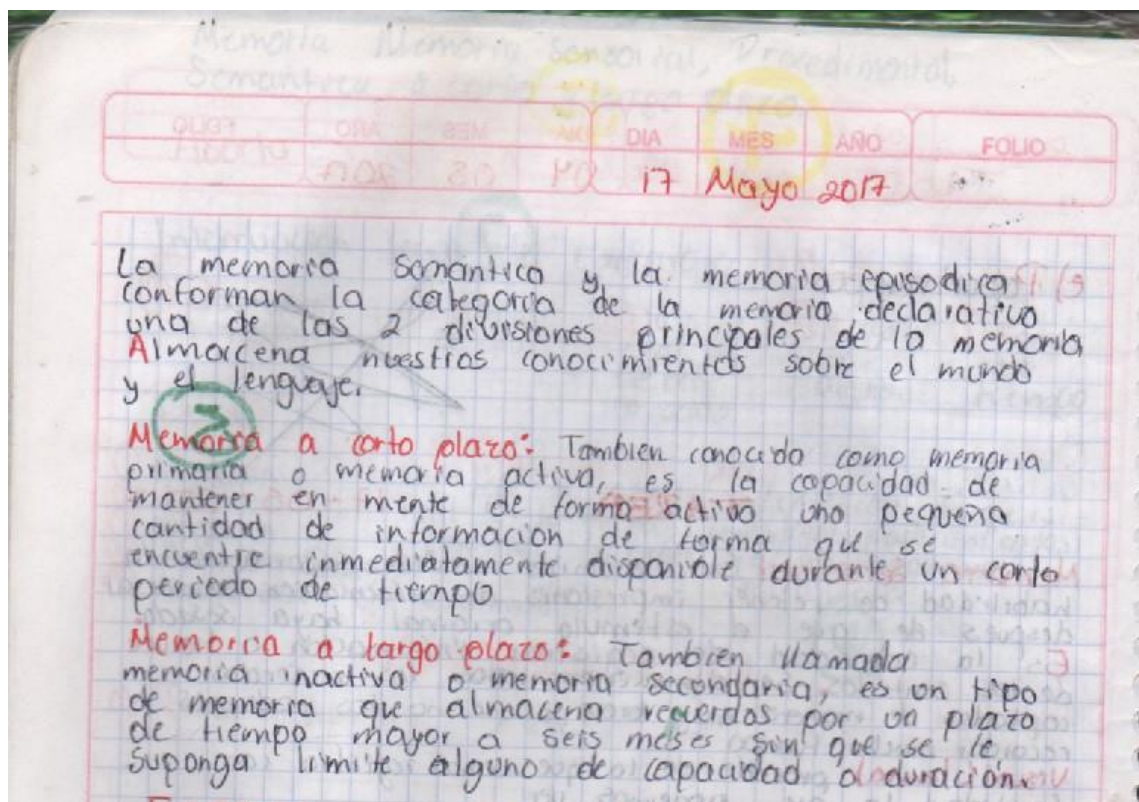 Memoria Memoria Sensorial, Procedimental,
Semantica a corto y largo plazo
DIA MES AÑO FOLIO
17 Mayo 2017
La memoria Semántica y la memoria episodica
conforman la categoria de la memoria declarativa
una de las 2 divisiones principales de la memoria
Almacena nuestros conocimientos sobre el mundo
y el lenguaje.
Memoria a corto plazo: Tambien conocida como memoria
primaria o memoria activa, es la capacidad de
mantener en mente de forma activa una pequeña
cantidad de informacion de forma que se
encuentre inmediatamente disponible durante un corto
periodo de tiempo
Memoria a largo plazo: Tambien llamada
memoria inactiva o memoria secundaria, es un tipo
de memoria que almacena recuerdos por un plazo
de tiempo mayor a seis meses sin que se le
suponga limite alguno de capacidad o duración.